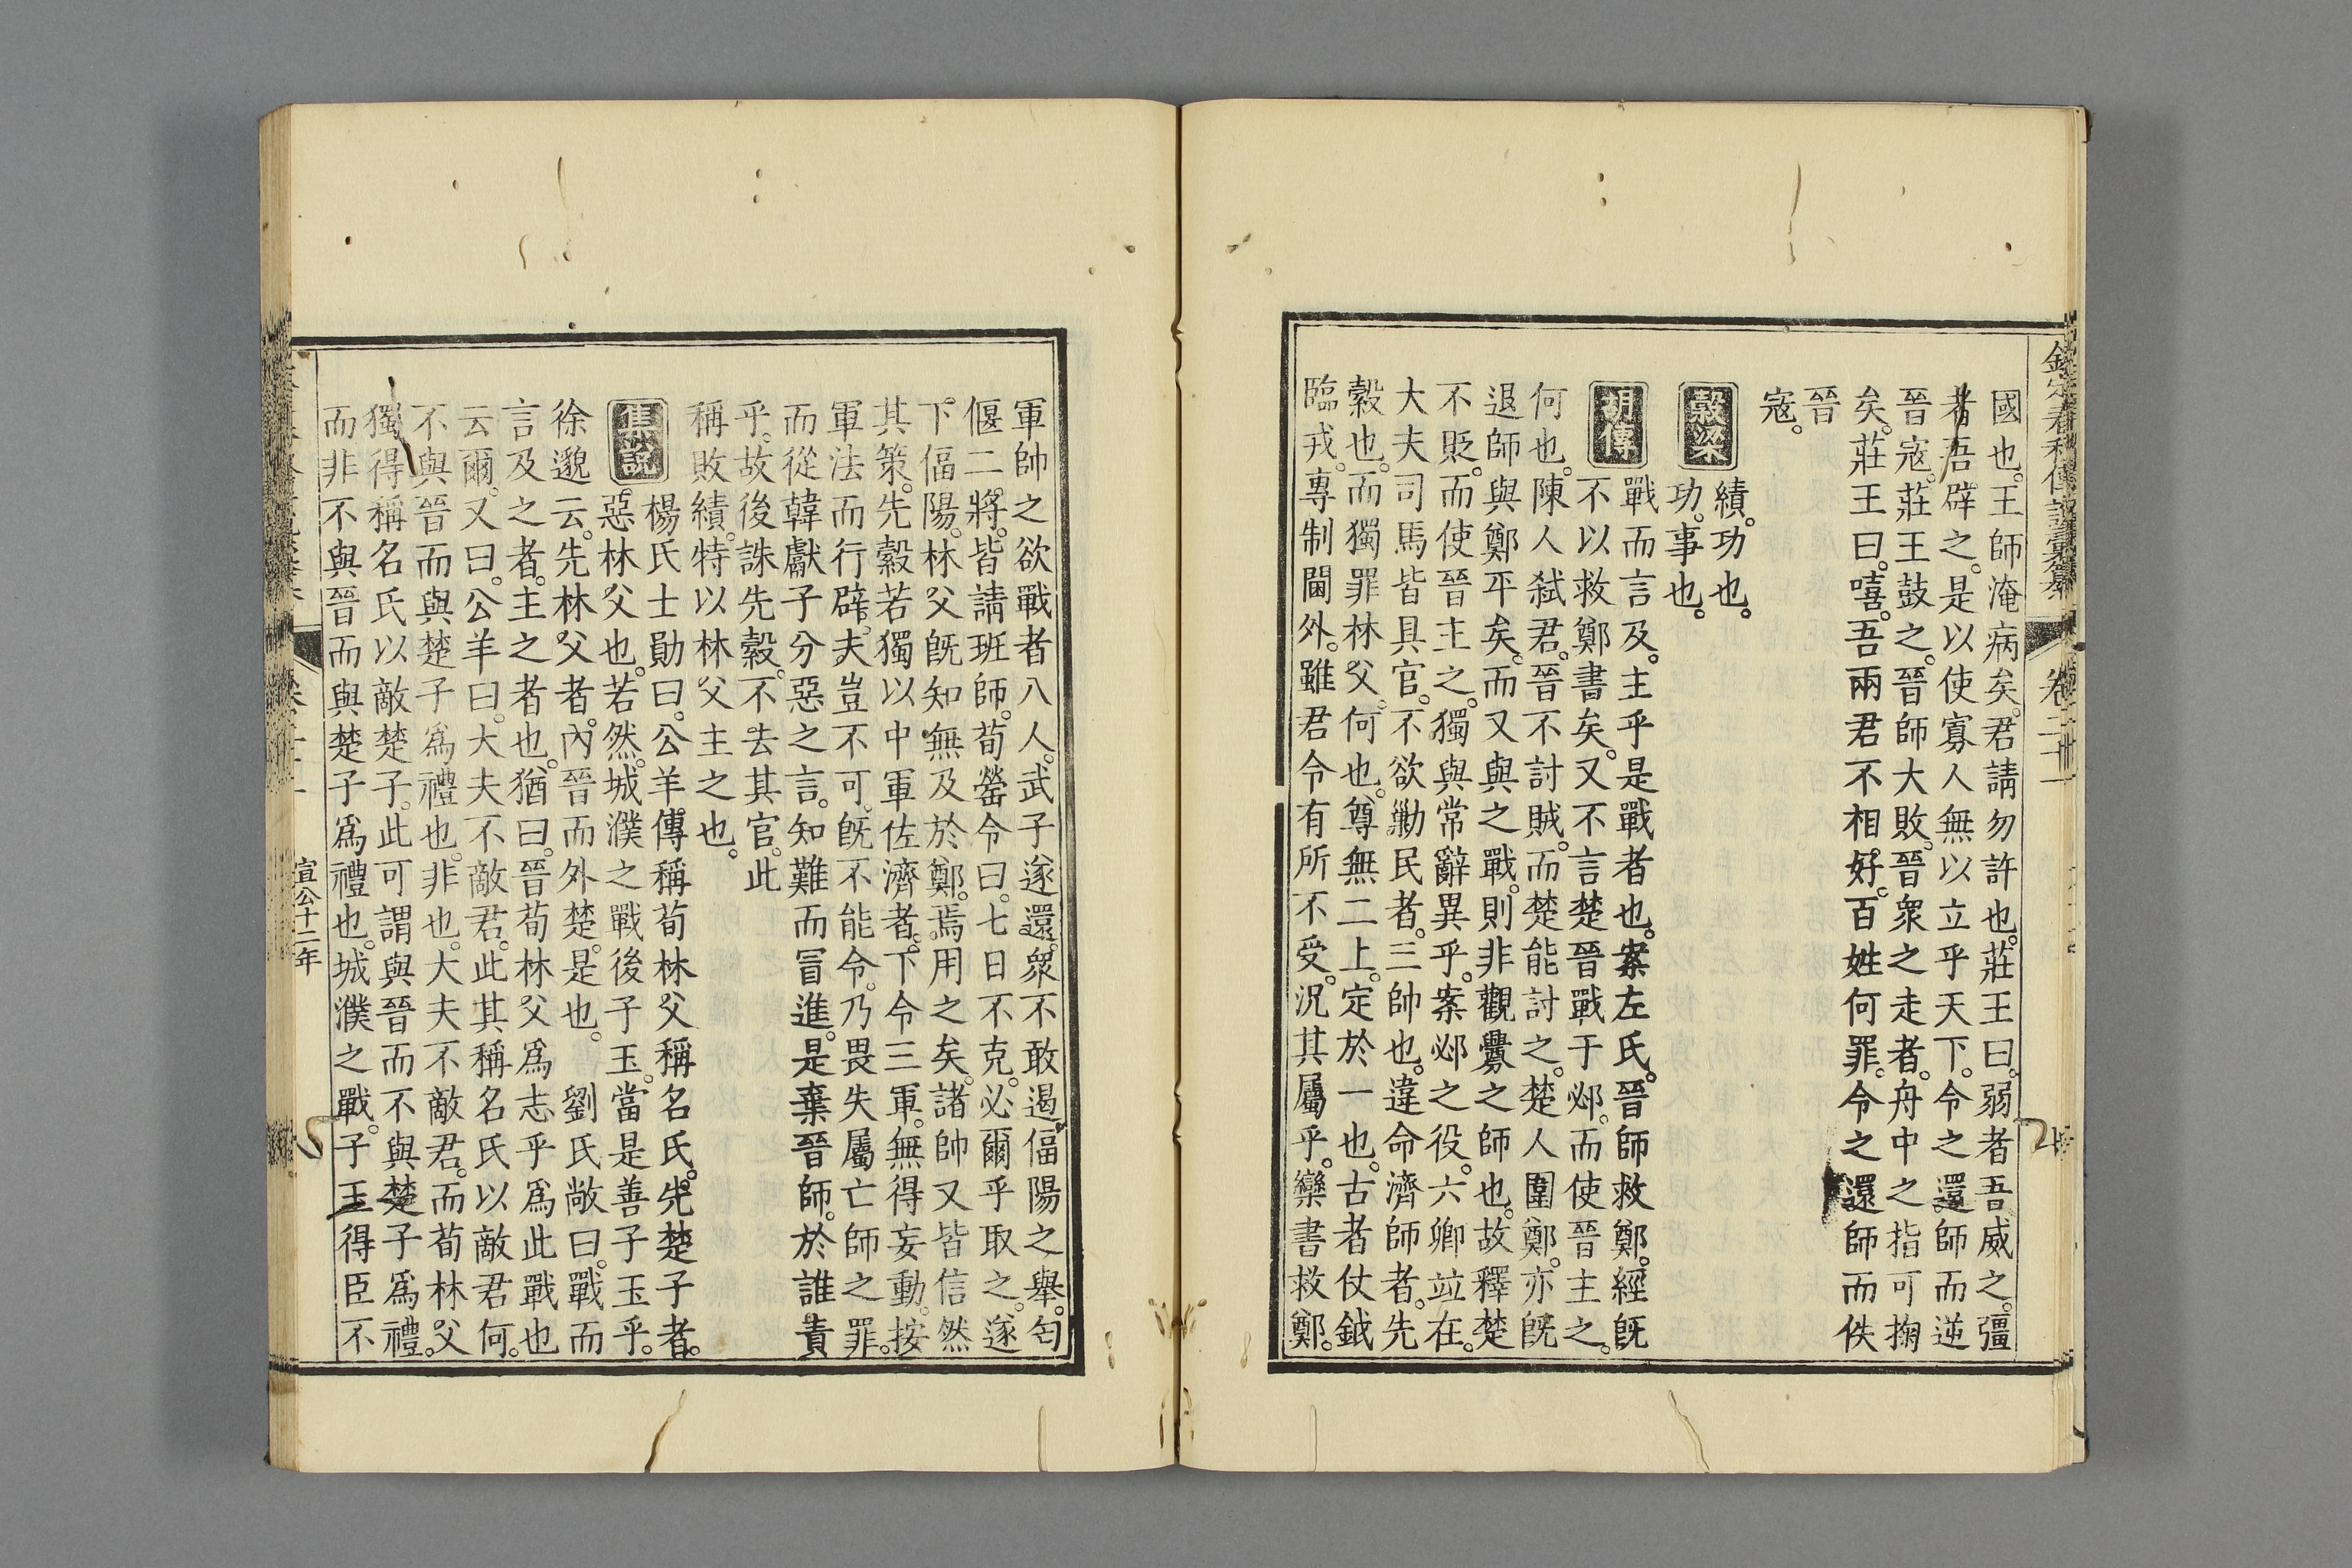 欽定春秋傳說彙纂 卷二十一
國也。王師淹病矣。君請勿許也。莊王曰。弱者吾威之。彊
者吾辟之。是以使寡人無以立乎天下。令之還師而逆
晉寇。莊王鼓之。晉師大敗。晉衆之走者。舟中之指可掬
矣。莊王曰。嘻。吾兩君不相好。百姓何罪。令之還師而佚
晉
寇。
穀梁
績。功也。
功。事也。
胡傳
戰而言及。主乎是戰者也。案左氏。晉師救鄭。經旣
不以救鄭書矣。又不言楚晉戰于邲。而使晉主之。
何也。陳人弑君。晉不討賊。而楚能討之。楚人圍鄭。亦旣
退師與鄭平矣。而又與之戰。則非觀釁之師也。故釋楚
不貶。而使晉主之。獨與常辭異乎。案邲之役。六卿竝在。
大夫司馬皆具官。不欲勦民者。三帥也。違命濟師者。先
縠也。而獨罪林父。何也。尊無二上。定於一也。古者仗鉞
臨戎。專制閫外。雖君令有所不受。況其屬乎。欒書救鄭。
軍帥之欲戰者八人。武子遂還。衆不敢遏。偪陽之舉。匄
偃二將。皆請班師。荀罃令曰。七日不克。必爾乎取之。遂
下偪陽。林父旣知無及於鄭。焉用之矣。諸帥又皆信然
其策。先縠若獨以中軍佐濟者。下令三軍。無得妄動。按
軍法而行辟。夫豈不可。旣不能令。乃畏失屬亡師之罪。
而從韓獻子分惡之言。知難而冒進。是棄晉師。於誰責
乎。故後誅先縠。不去其官。此
稱敗績。特以林父主之也。
集說
楊氏士勛曰。公羊傳稱荀林父稱名氏。先楚子者。
惡林父也。若然。城濮之戰後子玉。當是善子玉乎。
徐邈云。先林父者。內晉而外楚。是也。 劉氏敞曰。戰而
言及之者。主之者也。猶曰。晉荀林父爲志乎爲此戰也
云爾。又曰。公羊曰。大夫不敵君。此其稱名氏以敵君何。
不與晉而與楚子爲禮也。非也。大夫不敵君。而荀林父
獨得稱名氏以敵楚子。此可謂與晉而不與楚子爲禮。
而非不與晉而與楚子爲禮也。城濮之戰。子玉得臣不
宣公十二年